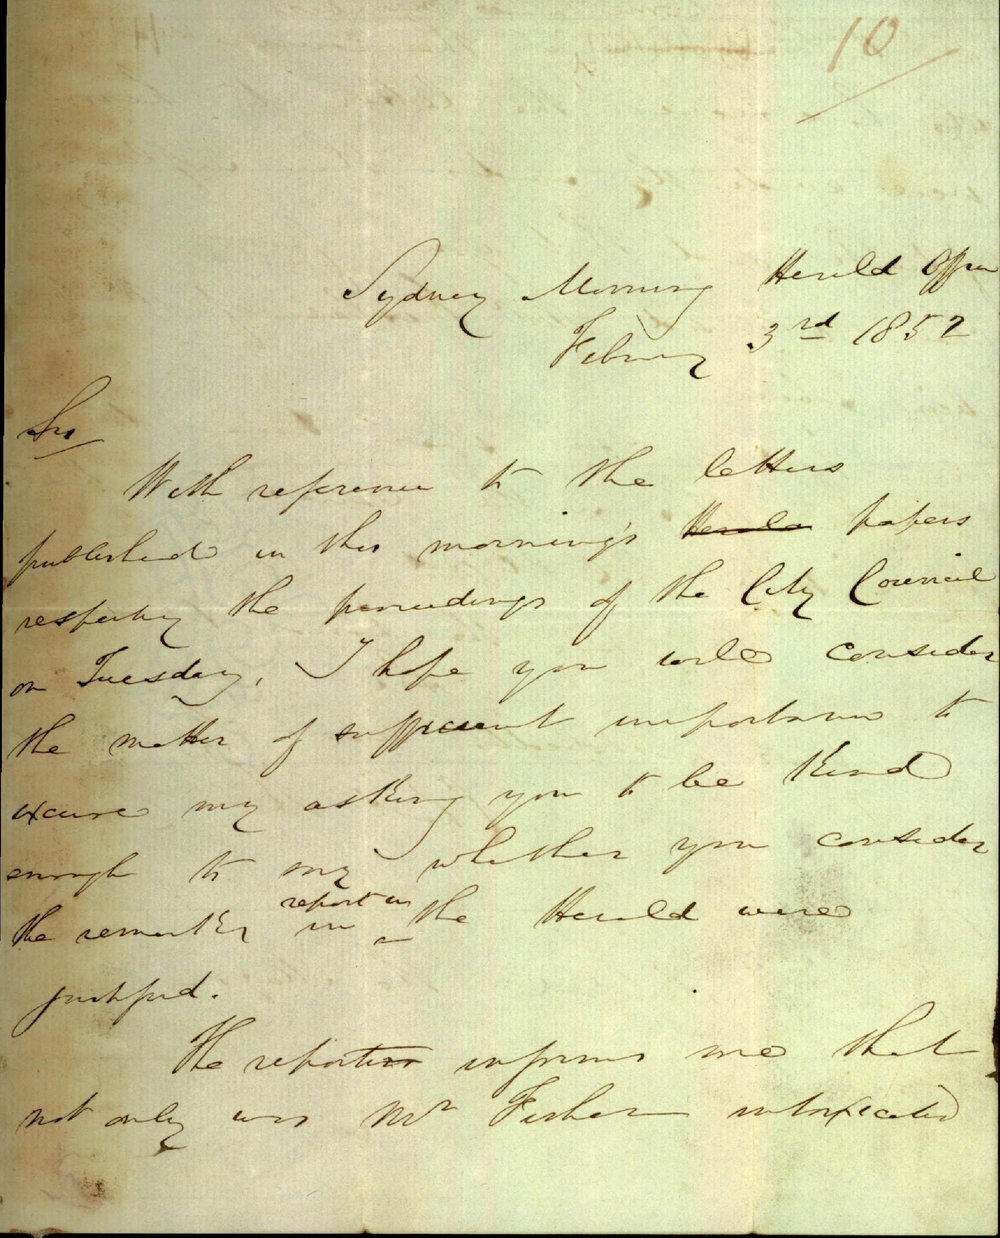 10
Sydney Morning Herald Office
February 3rd 1852
Sir
With reference to the letters
published in this morning's Herald papers
respecting the proceedings of the City Council
on Tuesday, I hope you will consider
the matter of sufficient importance to
excuse my asking you to be kind
enough to say whether you consider
the remarks in report in the Herald were
justified.
The reporter informs me that
not only was Mr Fisher intoxicated